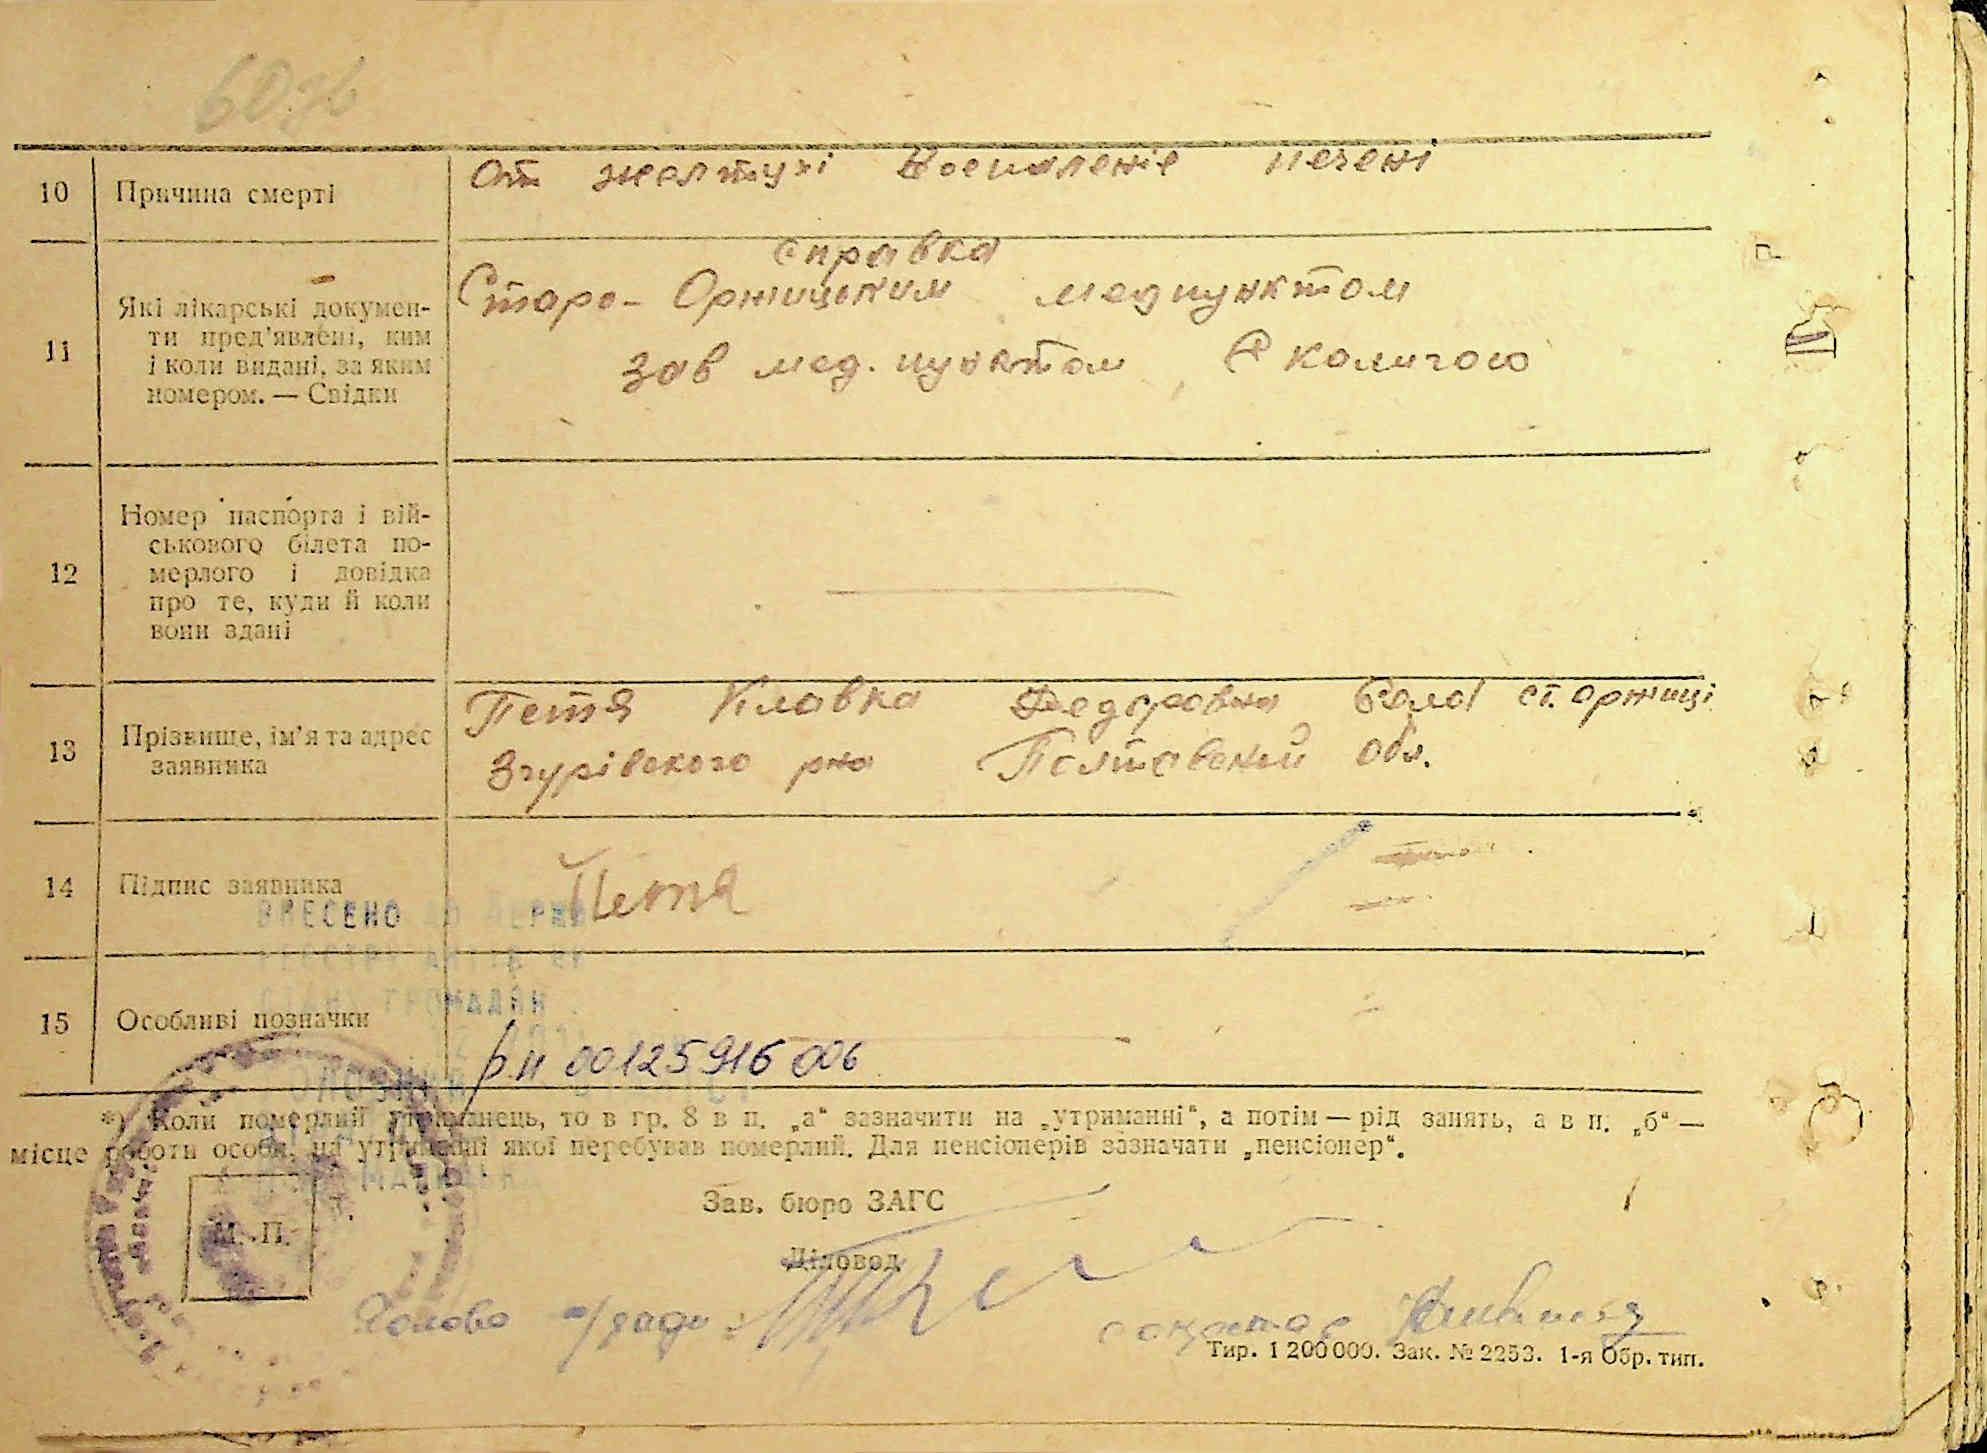 10 Причина смерті От желтухі Воспаленіе печені
справка
11 Які лікарські докумен- Старо- Оржицьким медпунктом
ти пред'явлені, ким
і коли видані, за яким зав мед. пунктом
номером. — Свідки
12 Номер паспорта і вій-
ськового білета по-
мерлого і довідка
про те, куди й коли
вони здані
13 Прізвище, ім'я та адрес Петя Клавка Федоровна Села ст. оржиці
заявника Згурівского рна Полтавский обл.
14 Підпис заявника Петя
ВНЕСЕНО ДО ДЕРЖ
ГРОМАДЯН
15 Особливі позначки
р.н 00125916006
*) Коли померлий утриманець, то в гр. 8 в п. „а“ зазначити на „утриманні“, а потім — рід занять, а в п. „б“ —
місце роботи особи, на утриманні якої перебував померлий. Для пенсіонерів зазначати „пенсіонер“.
Зав. бюро ЗАГС
М. П.
Діловод
Голова с/ради секретар
Тир. 1 200 000. Зак. № 2253. 1-я Обр. тип.